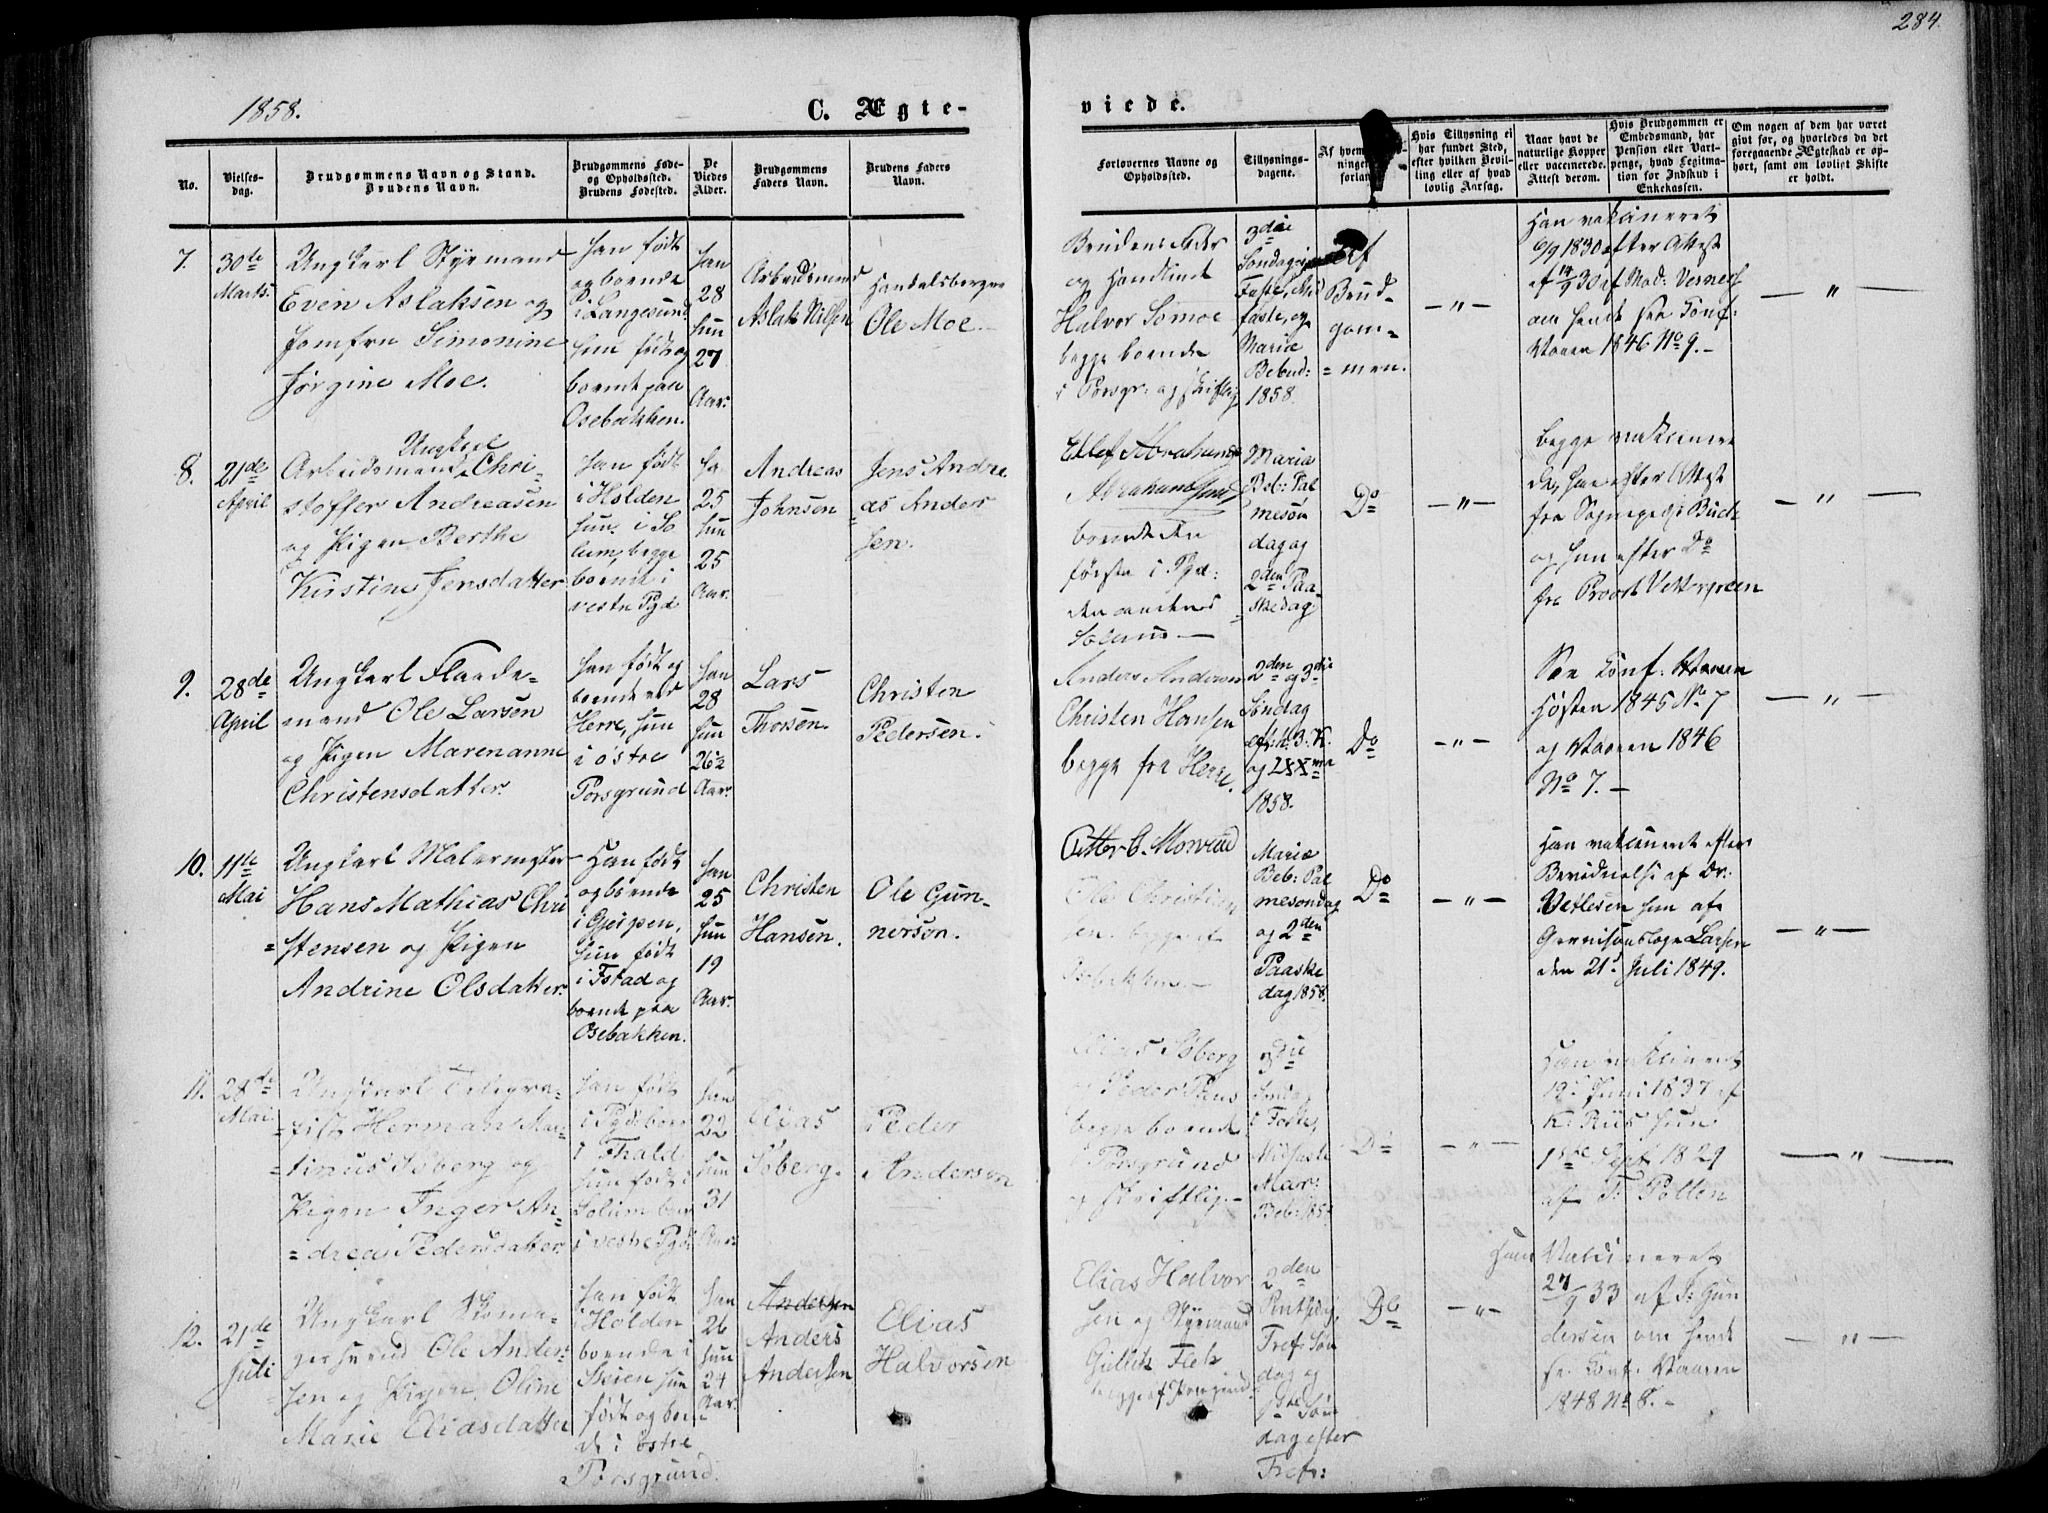 284.
1858.
C. Ægte-
viede.
No.
Vielses-
dag.
Brudgommens Navn og Stand.
Brudens Navn.
Brudgommens Føde-
og Opholdssted.
Brudens Fødested.
De
Viedes
Alder.
Brudgommens
Faders Navn.
Brudens Faders
Navn.
Forlovernes Navne og
Opholdssted.
Tillysnings-
dagene.
Af hvem
ningen
forlan
Hvis Tillysning ei
har fundet Sted,
efter hvilken Bevil-
ling eller af hvad
lovlig Aarsag.
Naar havt de
naturlige Kopper
eller vaccinerede.
Attest derom.
Hvis Brudgommen er
Embedsmand, har
Pension eller Vart-
penge, hvad Legitima-
tion for Indskud i
Enkekassen.
Om nogen af dem har været
givt før, og hvorledes da det
foregaaende Ægteskab er op-
hørt, samt om lovligt Skifte
er holdt.
7.
30te
Marts.
Ungkarl Styrmand
Even Aslaksen og
Jomfru Simonine
Jørgine Moe.
Han født
og boende
i Langesund
hun født og
boende paa
Osebakken.
Han
28
hun
27
Aar.
Arbeidsmand
Aslak Nilsen
Handelsborger
Ole Moe.
Brudens Fader
og Handlende
Halvor Somoe
begge boende
i Porsgr: og skriftlig
3die
Søndag i
Faste, Mid
faste, og
Mariæ
Bebud:
1858.
Af
Brud-
gom=
= men.
— " —
Han vakcineret
6/9 1830 efter Attest
af 14/9 30 af Mad: Verner
om hende see Conf:
Vaaren 1846 No 9. —
— " —
8.
21de
April
Ungkarl
Arbeidsmand Chri-
stoffer Andreasen
og Pigen Berthe
Kirstine Jensdatter
Han født
i Holden
hun i So
lum, begge
boende i
vestre Pgd
Ha
25
hun
25
Aar.
Andreas
Johnsen
Jens Andre
as Ander
sen.
Ellef Abrahams
Abrahamsen
boende den
første i Pgd:
den anden
Solum —
Maria
Beb: Pal
mesøn
dag og
2den Paa
skedag
Do
— " —
begge vakcinere
de, han efter Attest
fra Sognepr:
og hun efter Do
fra Provst
— " —
9.
28de
April
Ungkarl Flaade-
mand Ole Larsen
og Pigen Marenanne
Christensdatter.
Han født og
boende ved
Herre, hun
i østre
Porsgrund
Han
28
hun
26½
Aar.
Lars
Thorsen.
Christen
Pedersen.
Anders Andersen
Christen Hansen
begge fra Herre.
2den og 3die
Søndag
eft: H. 3. K.
og
1858.
Do
— " —
See Conf: Vaaren
Høsten 1845 No 7
og Vaaren 1846
No 7. —
— " —
10.
11te
Mai
Ungkarl Malermester
Hans Mathias Chri
= stensen og Pigen
Andrine Olsdatter.
Han født
og boende
i Gjerpen,
hun født
i Fstad og
boende paa
Osebakken.
Han
25
hun
19
Aar.
Christen
Hansen.
Ole Gun-
nersen.
Petter C. Morvud
Ole Christian
sen. begge af
Osebakken. —
Mariæ
Beb: Pal
mesøndag
og 2den
Paaske
dag 1858.
Do
— " —
Han vakcineret efter
Bevidnelse af Dr:
Vetlesen hun af
Larsen
den 21. Juli 1849.
— " —
11.
28de
Mai
Ungkarl Telegra-
fist Herman Mar-
= tinus Soberg og
Pigen Inger An
= drea Pedersdatter
Han født
i Pgd boen
i Fhald
hun født i
Solum boen
i vestre Pgd
Han
22
hun
31
Aar.
Elias
Soberg.
Peder
Anderson
Elias Soberg
Peder
begge boende
i Porsgrund
og skriftlig. —
3die
Sønda
i Faste,
Midfaste
Mar:
Beb: 1858
Do
— " —
Han vakcineret
19. Juni 1837 af
K: Riis hun
1ste Sept: 1829
af T: Polten
— " —
12.
21de
Juli
Ungkarl Skoma-
gersvend Ole Ander-
sen og Pigen Oline
Marie Eliasdatter
Han født
i Holden
boende i
Skien hun
født og boen
de i østre
Porsgrund.
Han
26
hun
24
Aar.
Andersen
Anders
Andersen
Elias
Halvorsen
Elias Halvor
sen og Styrmand
Gullik Flek
begge af Porsgrund
2den
Pintsedag,
Tref: Søn
dag og
1ste Søn
dag efter
Tref:
Do
— " —
Han Vakcineret
27/9 33 af S: Gun
dersen om hende
se Conf: Vaaren
1848 No 8. —
— " —